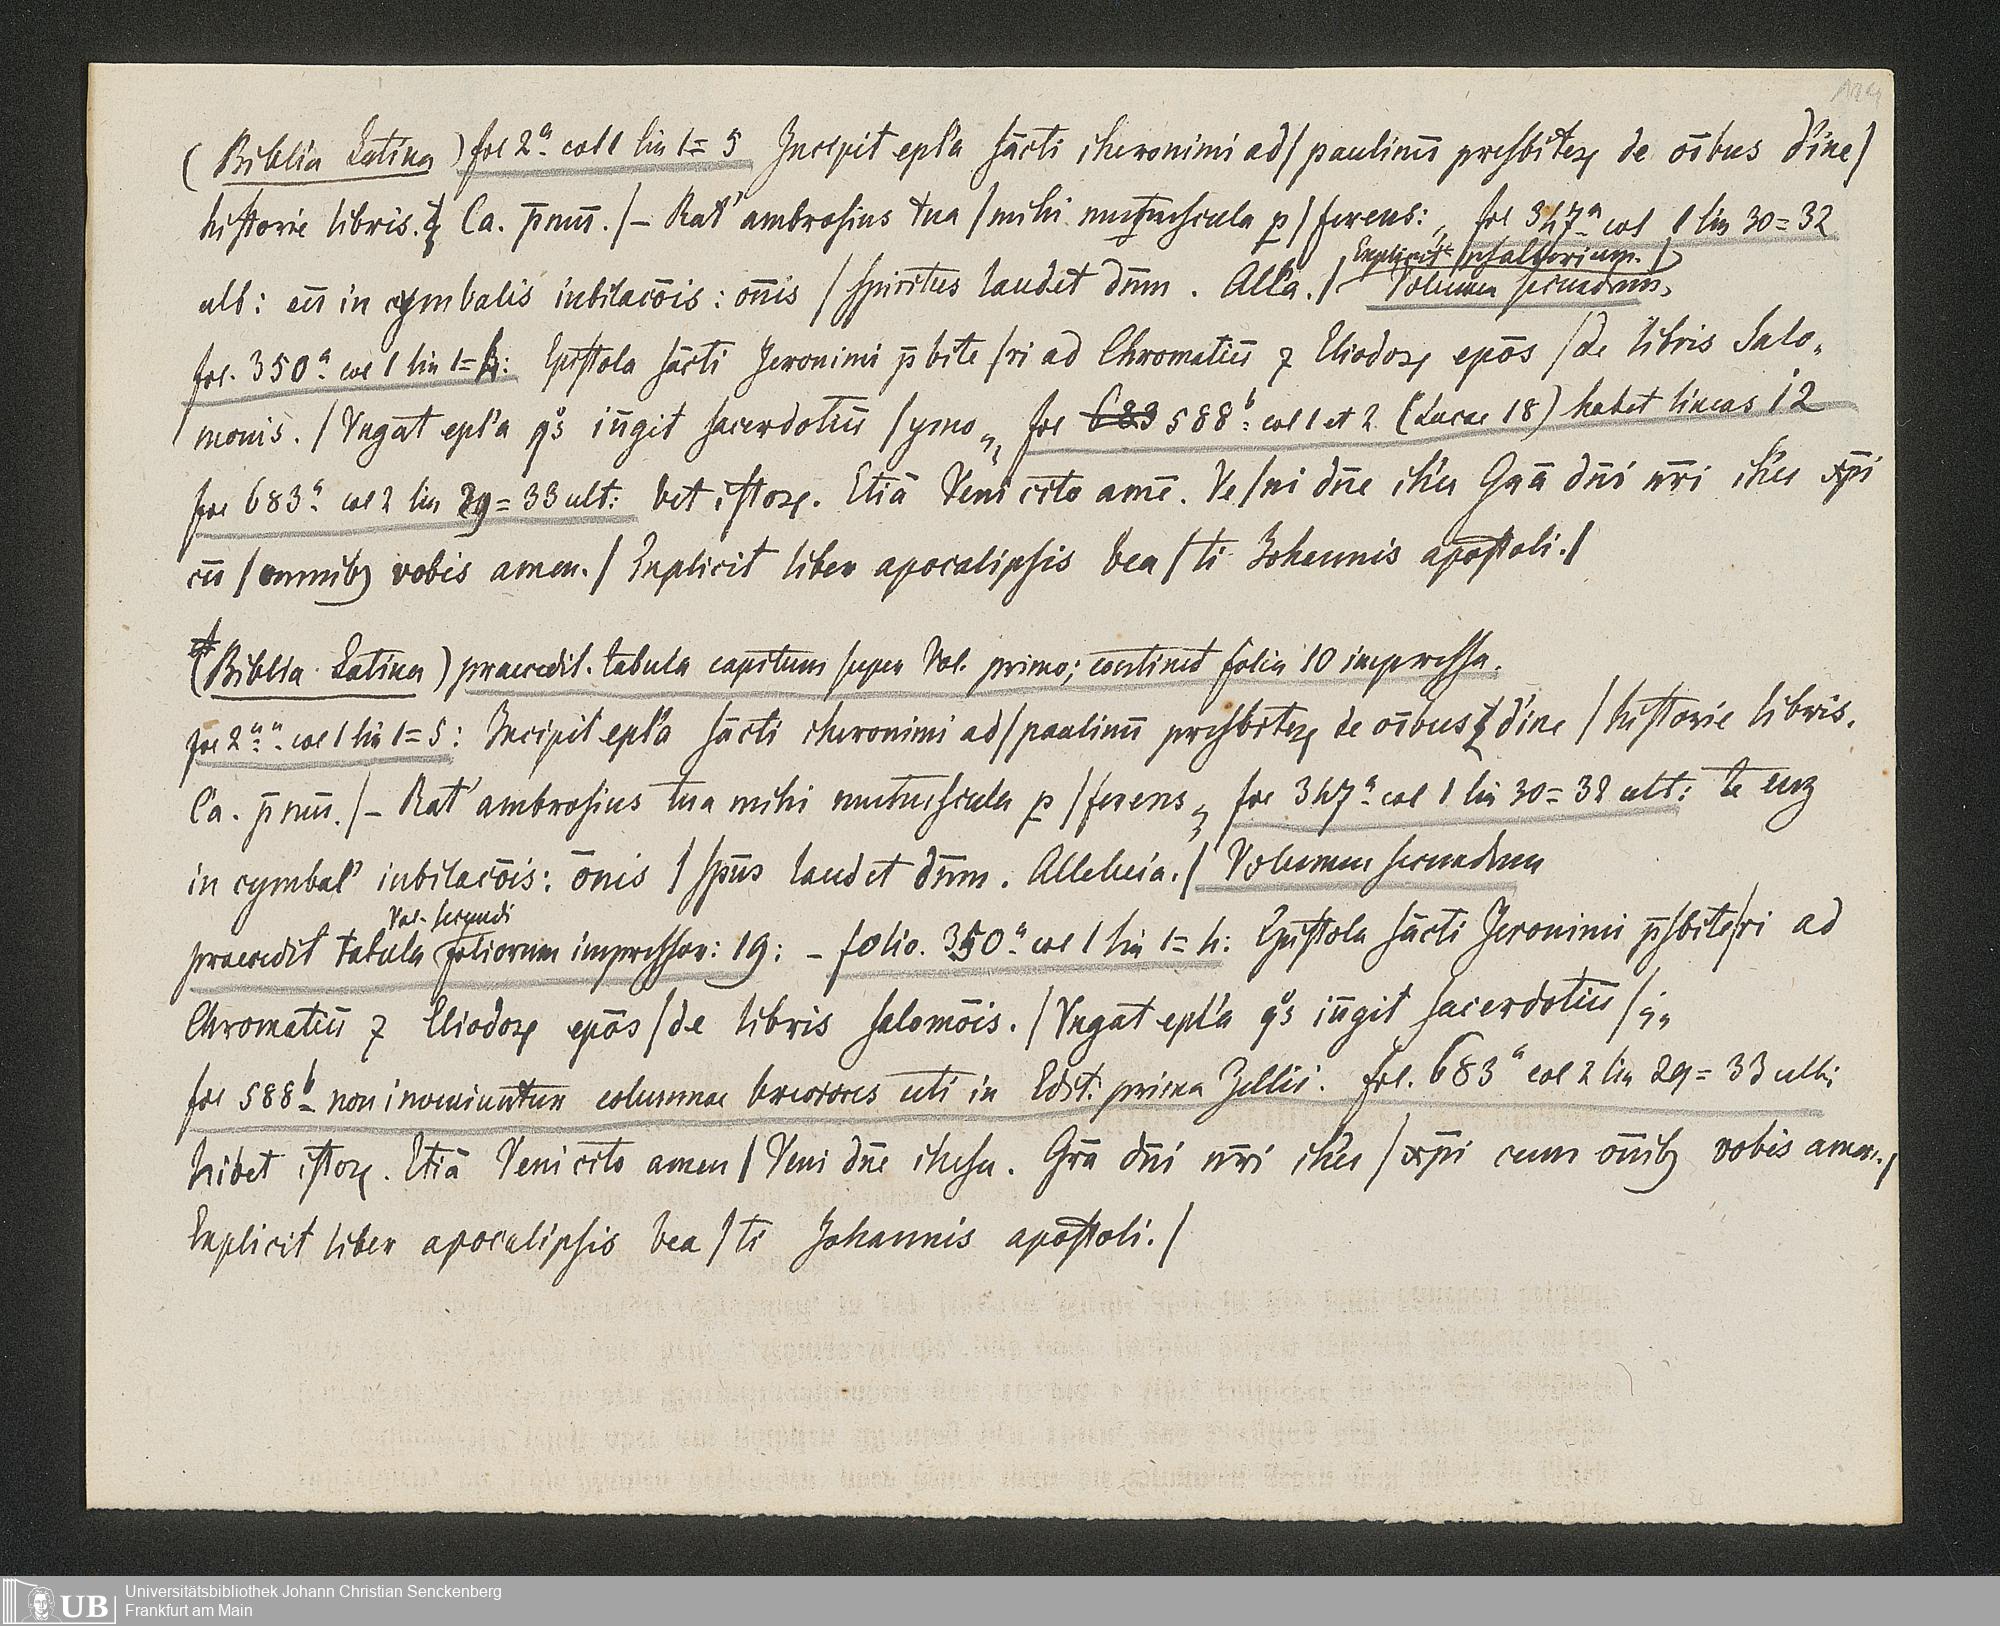 184
(Biblia Latina) fol 2a col 1 lin 1=5 Incipit epl'a sācti iheronimi ad/paulinū presbiteꝝ de oībus d'ine/
historie libris. Ca. p̄mū./– Rat' ambrosius tua/mihi munuscula p/ferens: „ fol 347a col 1 lin 30=32
ult: eū in cymbalis iubilacōis: om̄is / spiritus laudet dn̄m. All'a./ Explicit psalterium./
Volumen secundum.
fol. 350a col 1 lin 1=4: Epistola sācti Jeronimi p̄sbite/ri ad Chromatiū ⁊ Eliodoꝝ epōs /de libris Salo„
monis. / Vngat epl'a qo̊s iūgit sacerdotiū / ymo „ fol 588b: col 1 et 2 (Lucae 18) habet lineas 12
fol 683a col 2 lin 29=33 ult: bet istoꝝ. Etiā Veni cito amē. Ve/ni dn̄e ih'u Grā dn̄i nr̄i ih'u xp̄i
cū / omnibꝫ vobis amen./ Explicit liber apocalipsis bea/ti Johannis apostoli./
(Biblia Latina) praecedit. tabula capitum super Vol. primo; continet folia 10 impressa.
fol 2a. col 1 lin 1=5: Incipit epl'a sācti iheronimi ad/paulinū presbiteꝝ de oībus d'ine / historie libris.
Ca. p̄mū./– Rat' ambrosius tua mihi munuscula p /ferens „ fol 347a col 1 lin 30=32 ult: te eūꝫ
in cymbal' iubilacōis: ōnis / sp̄us laudet dn̄m. Alleluia./ Volumen secundum
praecedit tabula Vol. secundi foliorum impressor: 19: – folio. 350a col 1 lin 1=4: Epistola sācti Jeronimi p̄sbite/ri ad
Chromatiū ⁊ Eliodoꝝ epōs /de libris salomōis. / Vngat epl'a qo̊s iūgit sacerdotiū /
fol 588b non inveniuntur columnae breviores uti in Edit: prima Zellii. fol. 683a col 2 lin 29=33 ult:
hibet istoꝝ. Etiā Veni cito amen / Veni dn̄e ihesu. Grā dn̄i nr̄i ih'u / xp̄i cum om̄ibꝫ vobis amen./
Explicit liber apocalipsis bea/ti Johannis apostoli./
UB Universitätsbibliothek Johann Christian Senckenberg
Frankfurt am Main